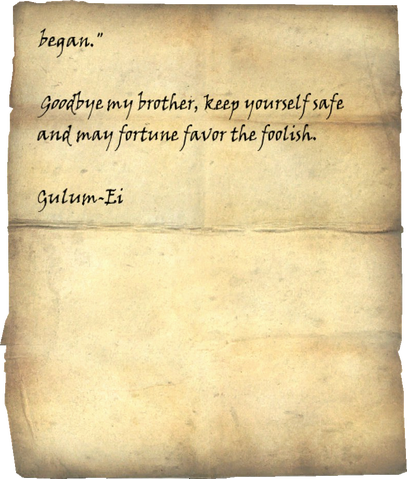 began."
Goodbye my brother, keep yourself safe
and may fortune favor the foolish.
Gulum-Ei